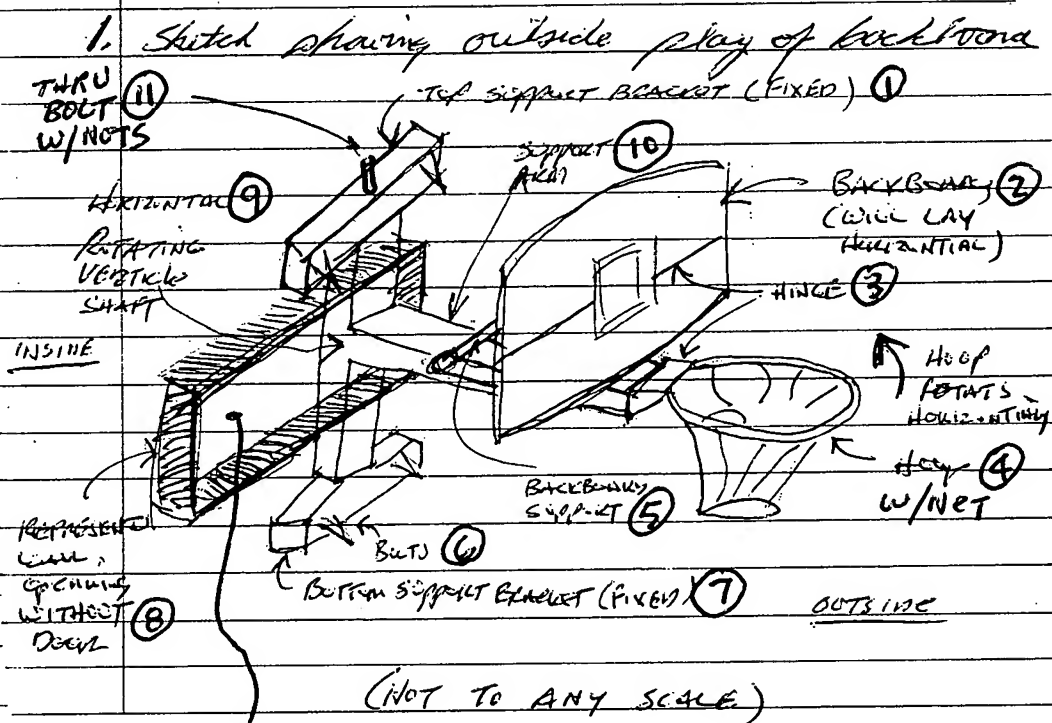 1. Sketch showing outside play of backboard
THRU
BOLT 11
W/NUTS
TOP SUPPORT BRACKET (FIXED) 1
SUPPORT 10
ARM
BACKBOARD 2
(WILL LAY
HORIZONTIAL)
HORIZONTAL 9
ROTATING
VERTICLE
SHAFT
HINGE 3
INSIDE
HOOP
ROTATS
HORIZONTIALY
HOOP 4
W/NET
BACKBOARD
SUPPORT 5
BOLTS 6
BOTTOM SUPPORT BRACKET (FIXED) 7
REPRESENTS
WALL,
OPENING
WITHOUT 8
DOOR
OUTSIDE
(NOT TO ANY SCALE)